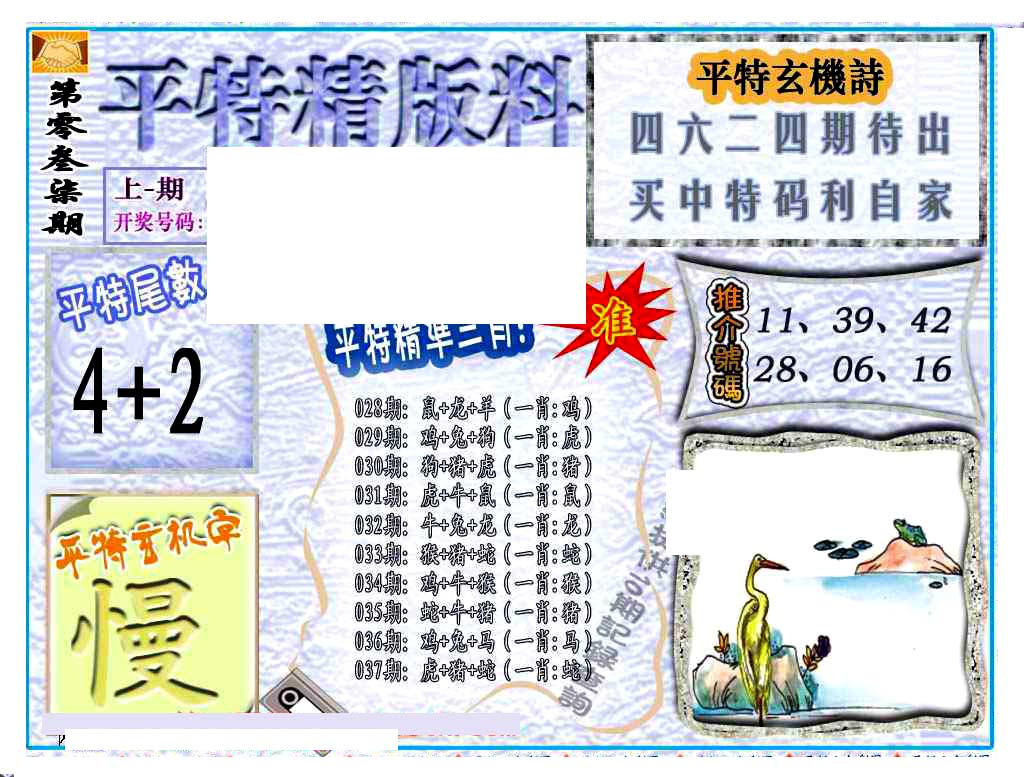 第零叁柒期
平特精版料
上-期
开奖号码:
平特玄機詩
四六二四期待出
买中特码利自家
平特尾數
4+2
平特精準三肖!
准
推介號碼
11、39、42
28、06、16
028期: 鼠+龙+羊 (一肖:鸡)
029期: 鸡+兔+狗 (一肖:虎)
030期: 狗+猪+虎 (一肖:猪)
031期: 虎+牛+鼠 (一肖:鼠)
032期: 牛+兔+龙 (一肖:龙)
033期: 猴+猪+蛇 (一肖:蛇)
034期: 鸡+牛+猴 (一肖:猴)
035期: 蛇+牛+猪 (一肖:猪)
036期: 鸡+兔+马 (一肖:马)
037期: 虎+猪+蛇 (一肖:蛇)
供10期記錄查詢
平特玄机字
慢